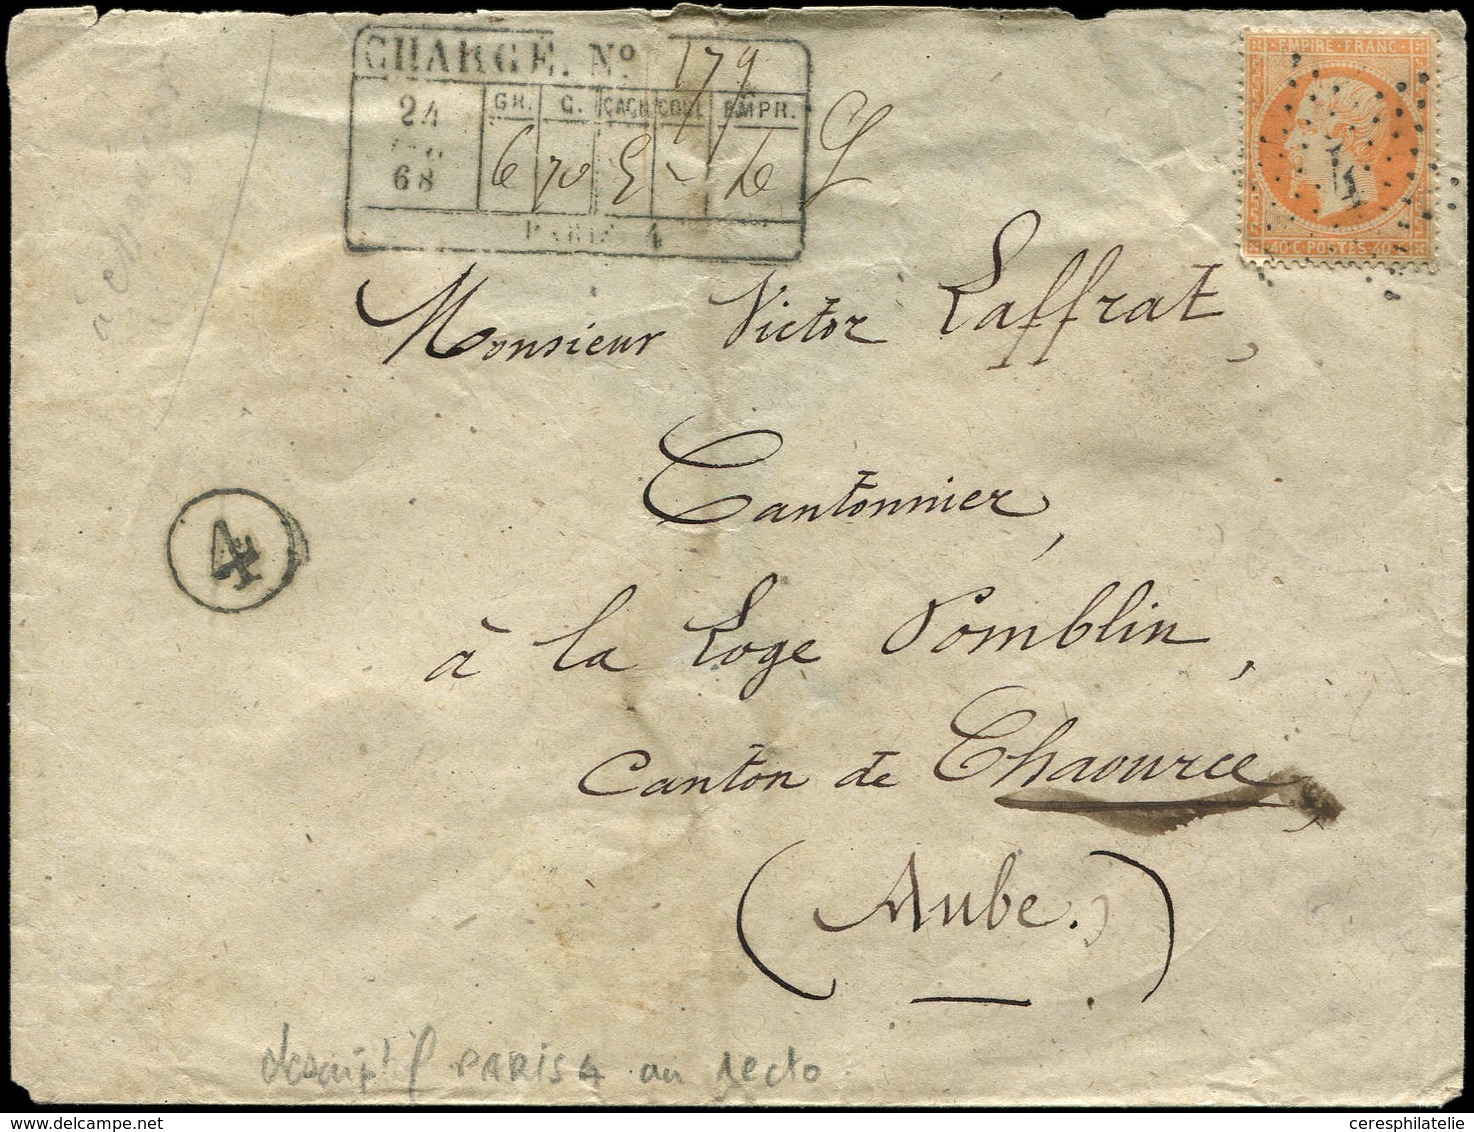 CHARGÉ. Nº 179
GR. G. CACH COUL EMPR.
24
68
6 70 5 - le
PARIS 4
EMPIRE FRANC
4
40 C POSTES 40
Monsieur Victor Laffrat,
Cantonnier,
4
à la Loge Pomblin,
Canton de Chaource,
(Aube.)
descript f PARIS 4 au recto
ceresphilatelie
delcampe.net